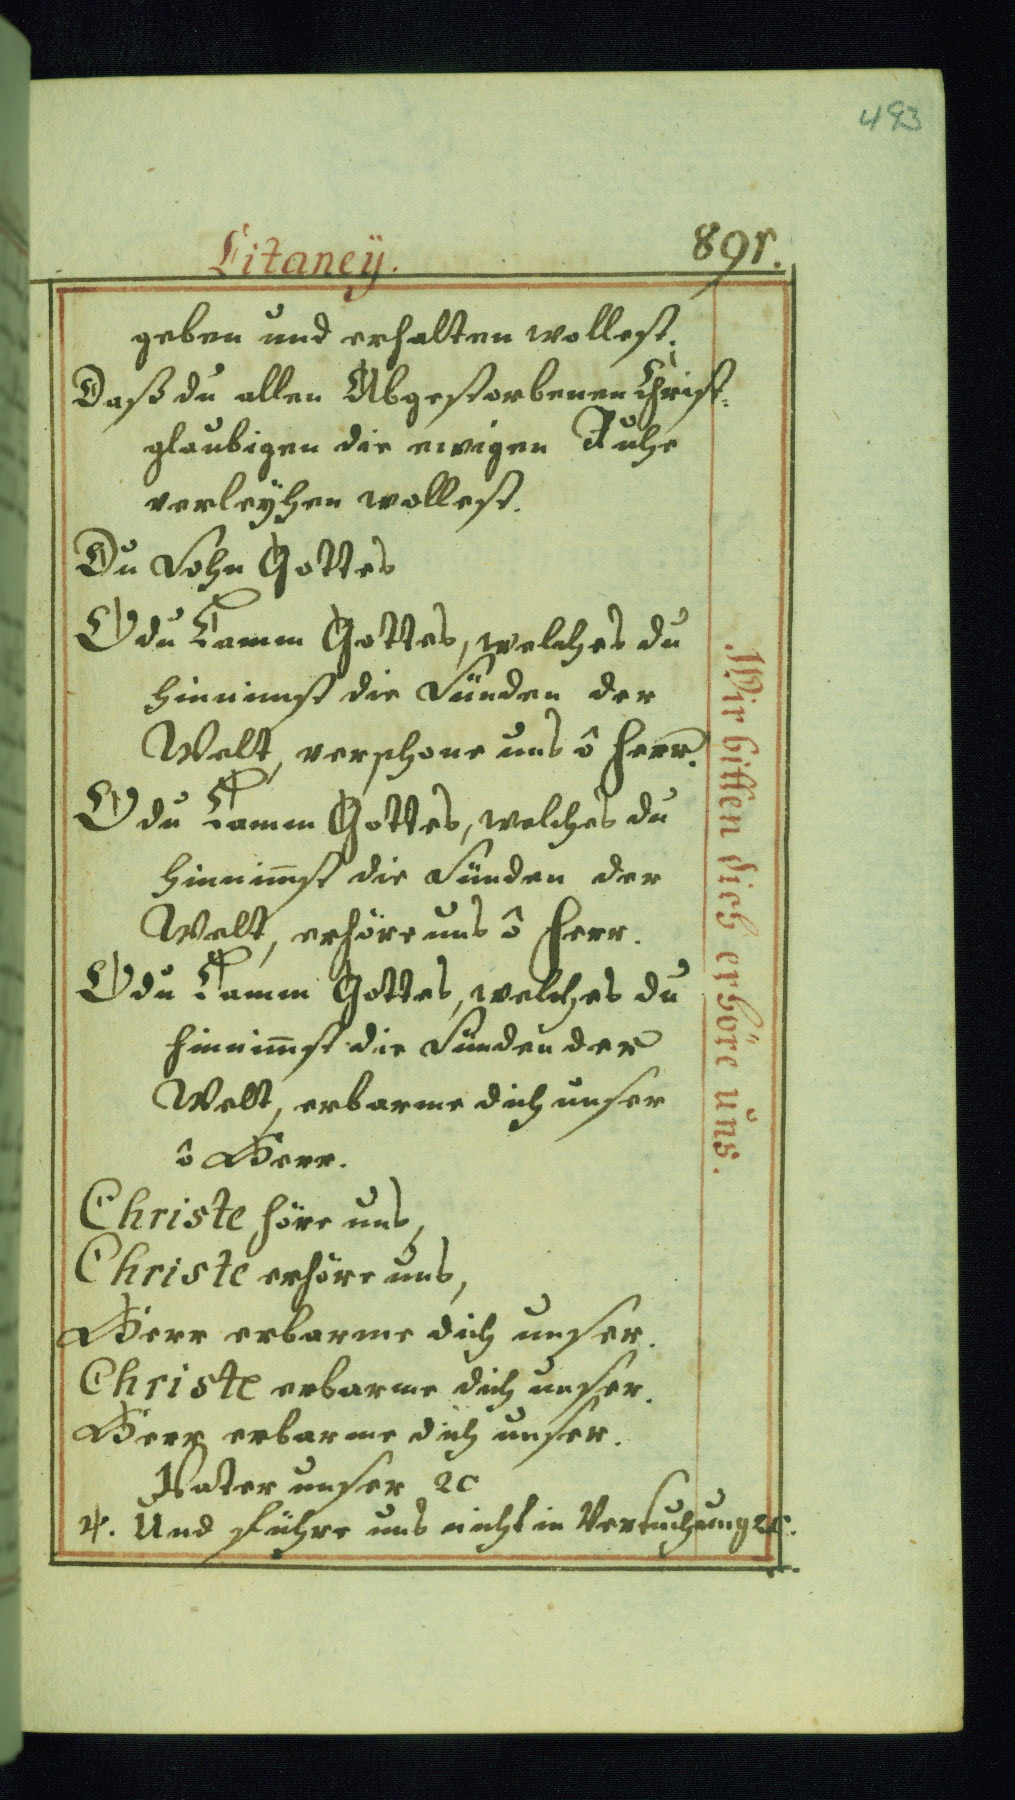 493
Litaneÿ. 891.
geben und erhalten wollest.
Daß du allen Abgestorbenen Christ-
glaubigen die ewigen Ruhe
verleÿhen wollest.
Du Sohn Gottes
O du Lamm Gottes, welches du
hinnimst die Sünden der
Welt, verschone uns ô herr.
O du Lamm Gottes, welches du
hinnim̅st die Sünden der
Welt, erhöre uns ô herr.
O du Lamm Gottes, welches du
hinnim̅st die Sünden der
Welt, erbarme dich unser
ô Herr.
Christe höre uns,
Christe erhöre uns,
Herr erbarme dich unser.
Christe erbarme dich unser.
Herr erbarme dich unser.
Vater unser ꝛc
℣. Und führe uns nicht in Versuchung ꝛc.
Wir bitten dich erhöre uns.